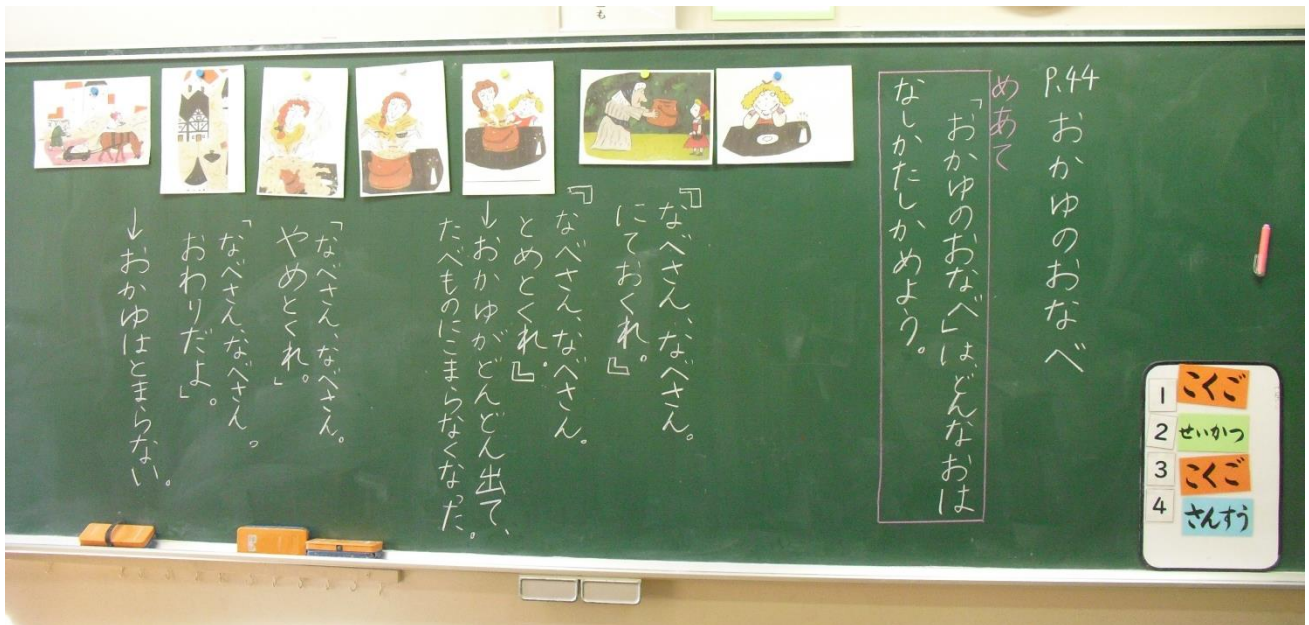 も
P.44 おかゆのおなべ
めあて
「おかゆのおなべ」は、どんなおは
なしかたしかめよう。
『なべさん、なべさん。
にておくれ。』
『なべさん、なべさん。
とめとくれ。』
→おかゆがどんどん出て、
たべものにこまらなくなった。
「なべさん、なべさん。
やめとくれ。」
「なべさん、なべさん。
おわりだよ」。
→おかゆはとまらない。
1 こくご
2 せいかつ
3 こくご
4 さんすう